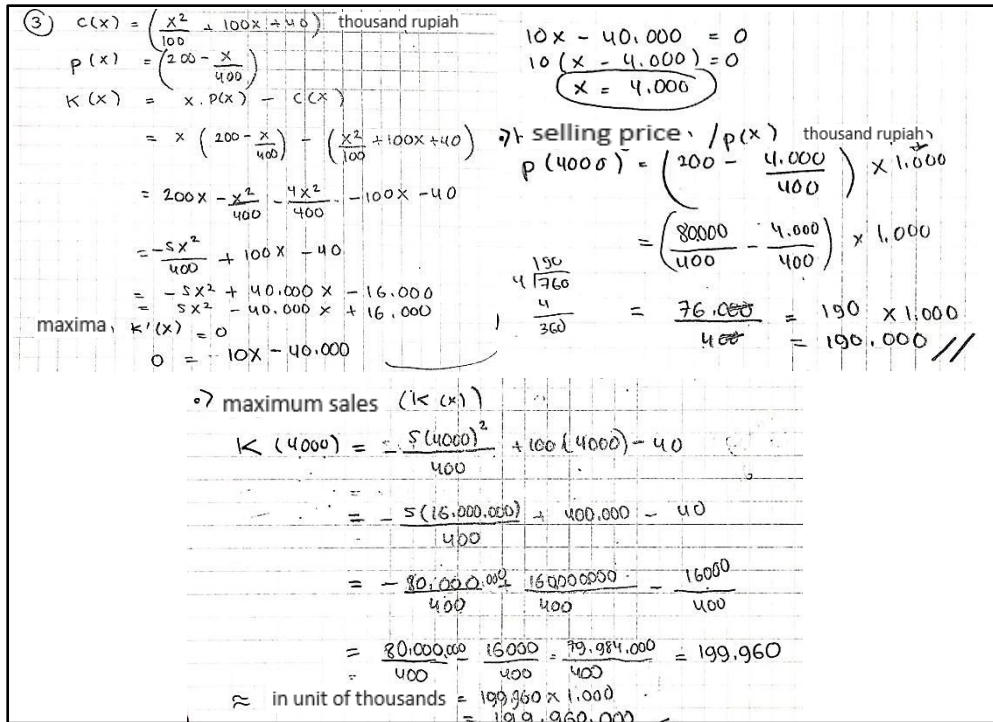 ③ C(x) = (x²/100 + 100x + 40) thousand rupiah
p(x) = (200 - x/400)
K(x) = x . p(x) - C(x)
= x (200 - x/400) - (x²/100 + 100x + 40)
= 200x - x²/400 - 4x²/400 - 100x - 40
= -5x²/400 + 100x - 40
= -5x² + 40.000x - 16.000
= 5x² - 40.000x + 16.000
maxima, K'(x) = 0
0 = 10x - 40.000
10x - 40.000 = 0
10(x - 4.000) = 0
x = 4.000
selling price. /p(x) thousand rupiah
p(4000) = (200 - 4.000/400) x 1.000
= (80000/400 - 4.000/400) x 1.000
190
4 760
4
360
= 76.000/400 = 190 x 1.000
= 190.000 //
•) maximum sales (K(x))
K(4000) = -5(4000)²/400 + 100(4000) - 40
= - 5(16.000.000)/400 + 400.000 - 40
= - 80.000.000/400 + 160000000/400 - 16000/400
= 80.000.000/400 - 16000/400 = 79.984.000/400 = 199.960
≈ in unit of thousands = 199.960 x 1.000
= 199.960.000